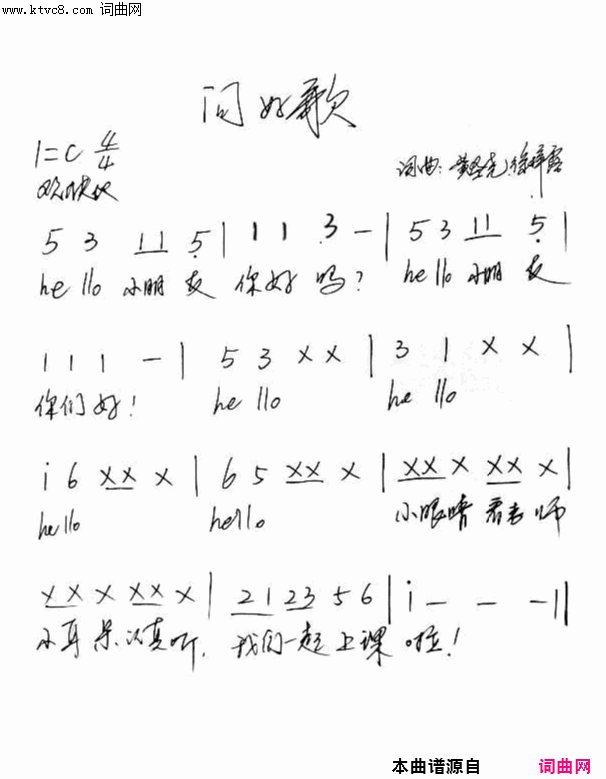 www.ktvc8.com 词曲网
问好歌
1=C 4/4
词曲:
欢快地
5 3 11 5 | 1 1 3 - | 5 3 11 5 |
hello 小朋友 你好吗? hello 小朋友
1 1 1 - | 5 3 x x | 3 1 x x |
你们好! hello hello
i 6 xx x | 6 5 xx x | xx x xx x |
hello hello 小眼睛 看老师
xx x xx x | 21 23 5 6 | i - - - ||
小耳朵认真听, 我们一起上课 啦!
本曲谱源自 词曲网